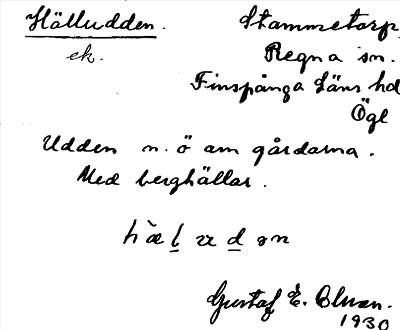 Hälludden. Stammetorp,
ek. Regna sn.
Finspånga Läns hd
Ögl
Udden n. ö om gårdarna.
Med berghällar.
Gustaf E. 
1930